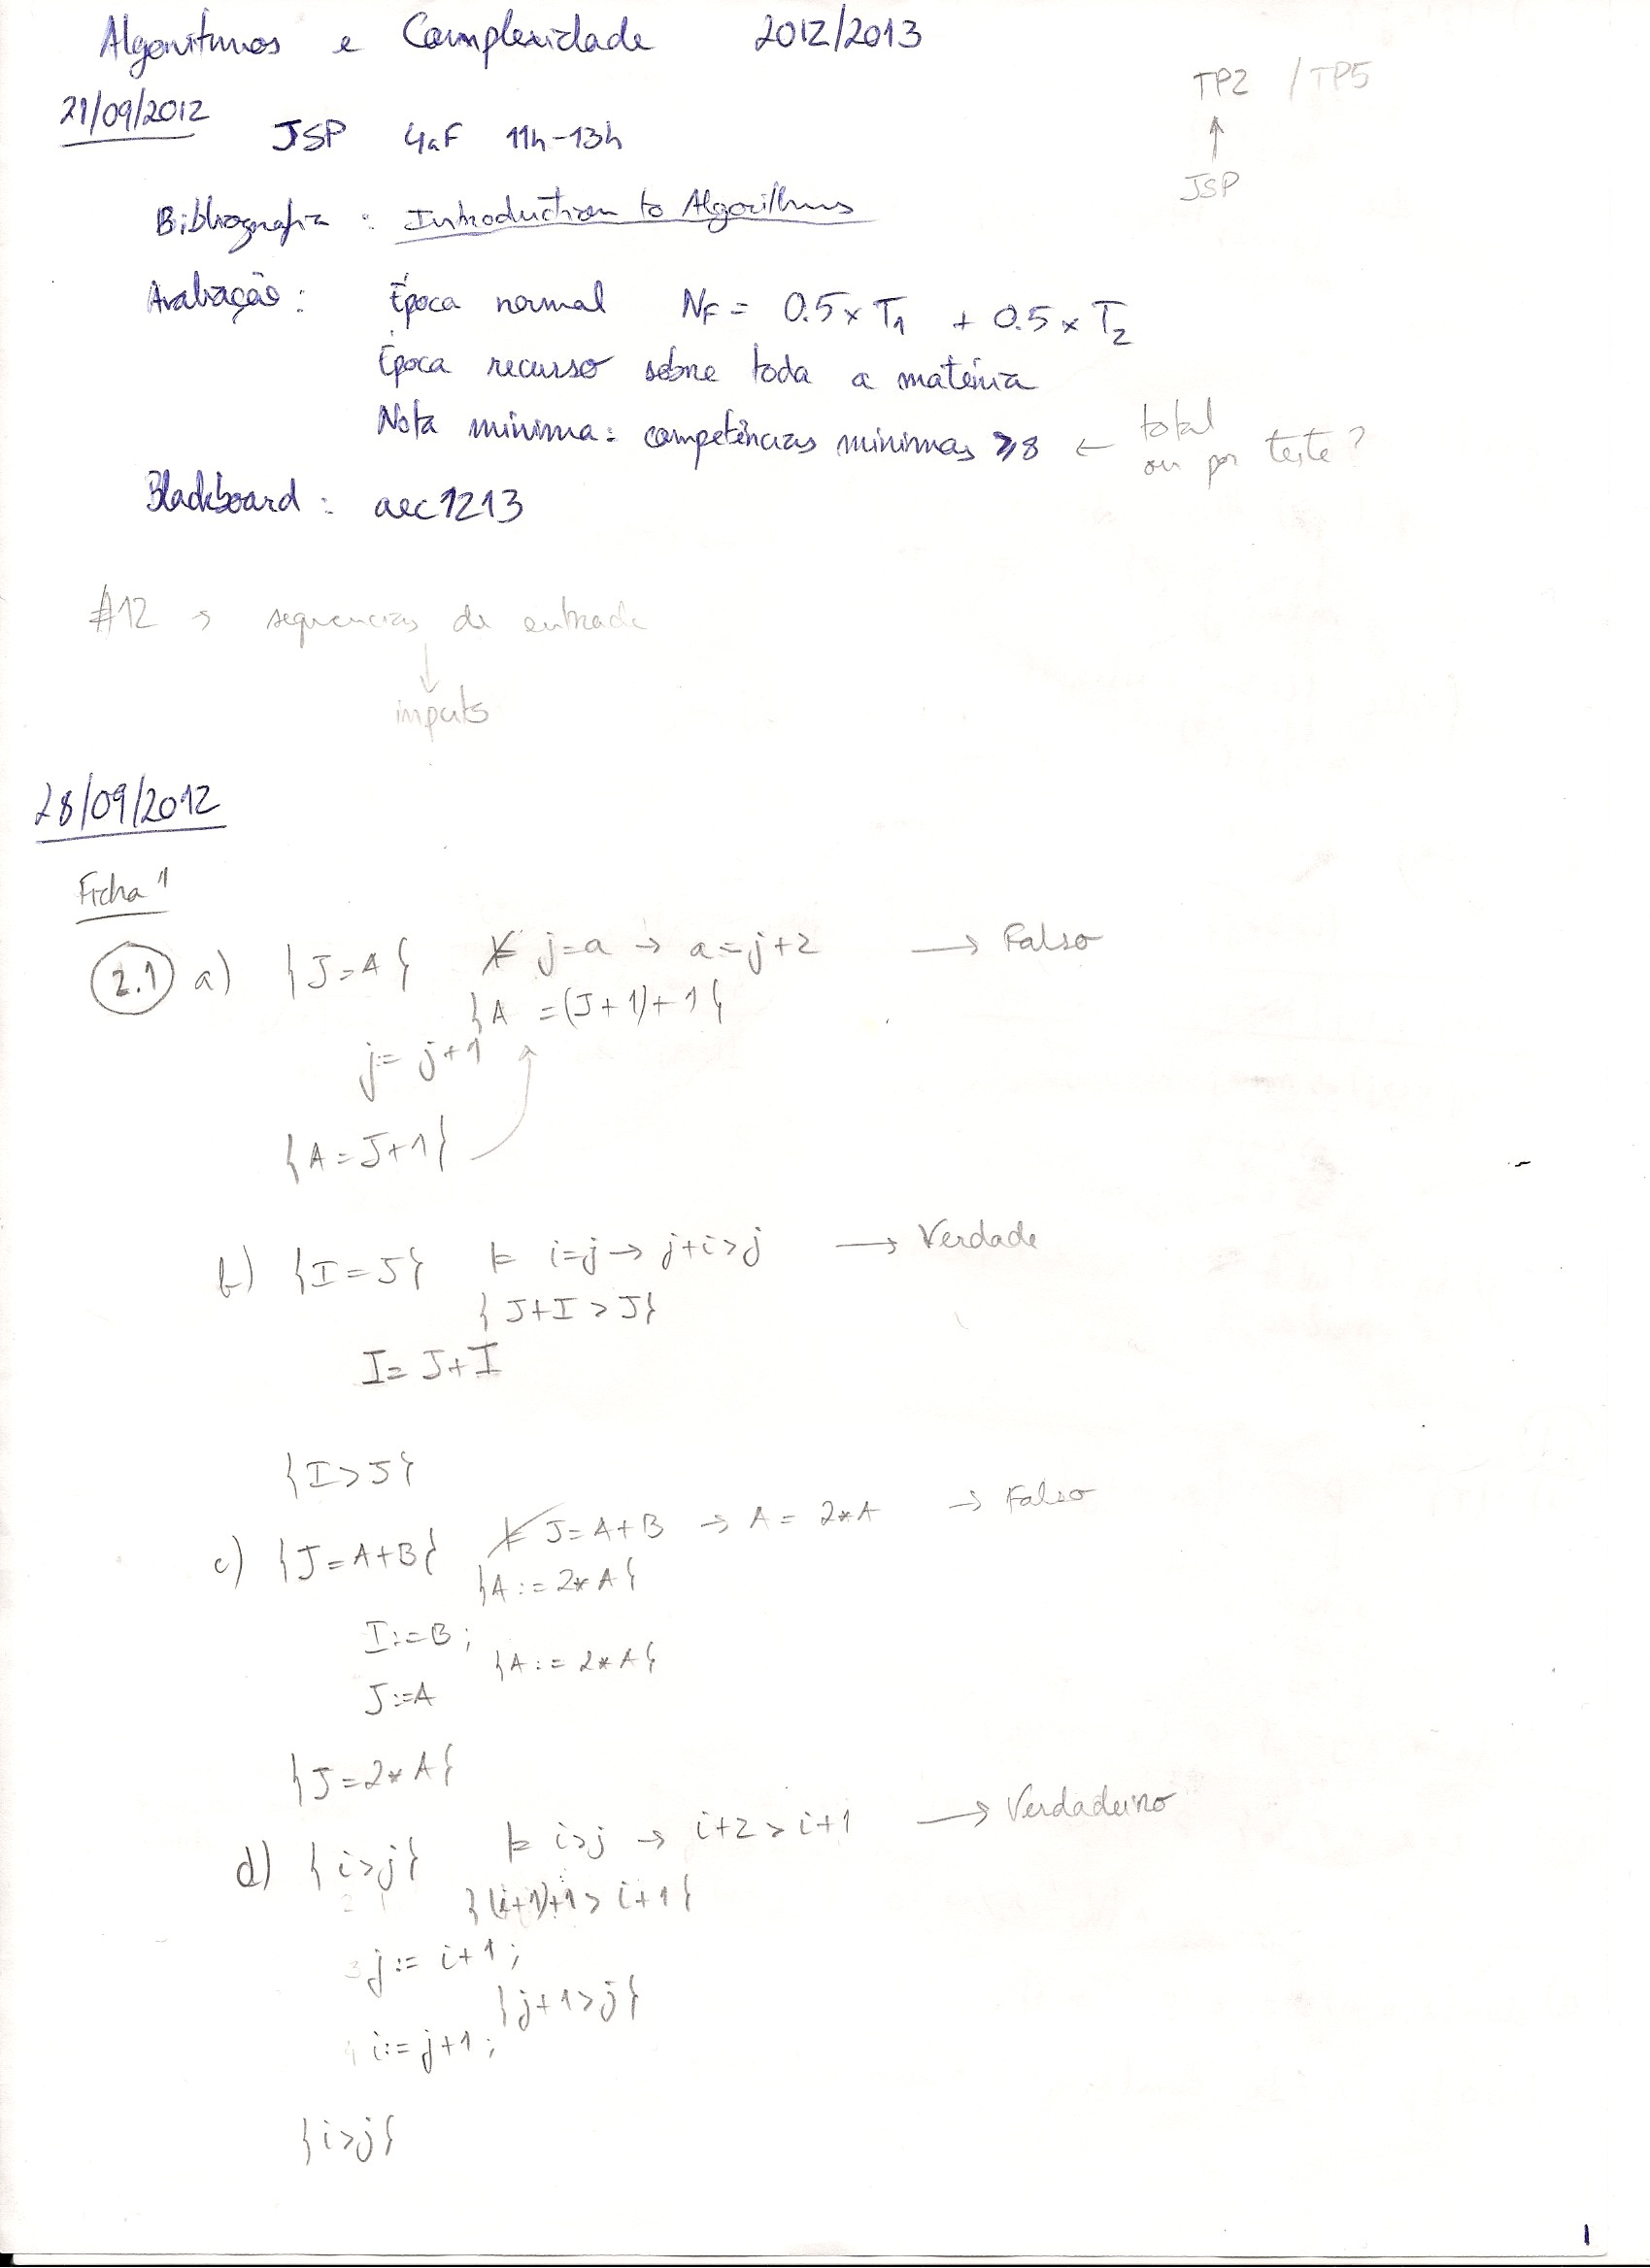 Algoritmos e Complexidade 2012/2013
TP2 / TP5
↑
JSP
21/09/2012
JSP 4aF 11h-13h
Bibliografia : Introduction to Algorithms
Avaliação : Época normal NF = 0.5 × T1 + 0.5 × T2
Época recurso sobre toda a matéria
Nota mínima : competências mínimas ≥8 ← total ou por teste?
Blackboard : aec1213
#12 → sequencias de entrada
↓
inputs
28/09/2012
Ficha 1
2.1 a) {J=A} ⊭ j=a → a=j+2 → Falso
{A = (J+1)+1}
j:= j+1
{A=J+1}
b) {I=J} ⊨ i=j → j+i>j → Verdade
{J+I > J}
I= J+I
{I>J}
c) {J=A+B} ⊭ J=A+B → A = 2*A → Falso
{A:=2*A}
I:=B;
{A:= 2*A}
J:=A
{J=2*A}
d) {i>j} ⊨ i>j → i+2>i+1 → Verdadeiro
2 1
{(i+1)+1> i+1}
3 j:= i+1;
{j+1>j}
4 i:= j+1;
{i>j}
1